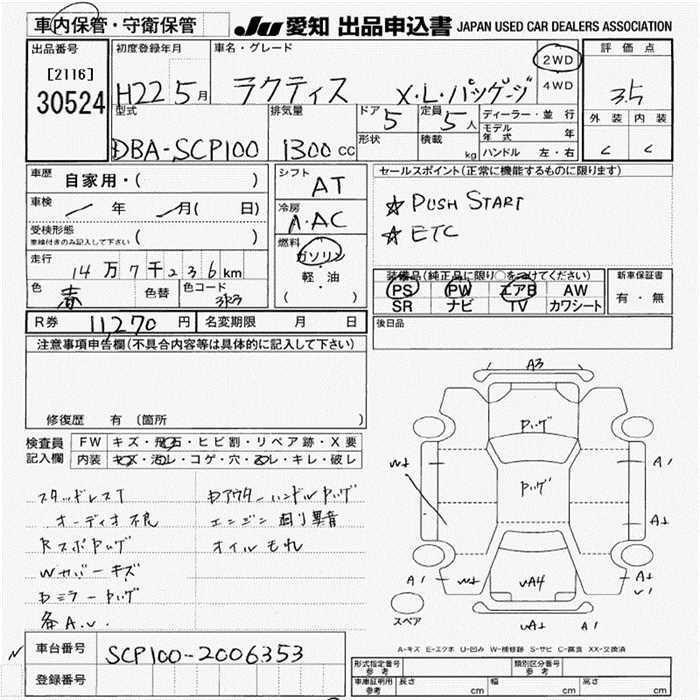 車内保管・守衛保管
JU 愛知 出品申込書 JAPAN USED CAR DEALERS ASSOCIATION
出品番号
[2116]
30524
初度登録年月
H22 5月
車名・グレード
ラクティス X・L・パッケージ
2WD
4WD
評価点
3.5
外装 内装
C C
型式
DBA-SCP100
排気量
1300 CC
ドア 5
形状
定員 5人
積載 kg
ディーラー・並行
モデル年式 年
ハンドル 左・右
車歴 自家用・( )
車検 年 月( 日)
受検形態
車検付きのみ記入して下さい ( )
走行
14万7千236km
色 赤 色替
色コード 3R3
シフト
AT
冷房
A・AC
燃料
ガソリン
軽・油
( )
セールスポイント(正常に機能するものに限ります)
☆ PUSH START
☆ ETC
装備品(純正品に限り○をつけてください)
PS PW エアB AW
SR ナビ TV カワシート
新車保証書
有・無
R券 11,270円 名変期限 月 日
後日品
注意事項申告欄(不具合内容等は具体的に記入して下さい)
修復歴 有 〔箇所 〕
検査員記入欄
FW キズ・飛石・ヒビ割・リペア跡・X要
内装 キズ・汚レ・コゲ・穴・ヌレ・キレ・破レ
スタッドレスT
オーディオ不良
Wカバーキズ
オイルモレ
車台番号 SCP100-2006353
登録番号
A3
A1
A1
UA4
A1
A1
スペア
A-キズ E-エクボ U-凹み W-補修跡 S-サビ C-腐食 XX-交換済
形式指定番号 参考
類別区分番号 参考
車庫証明用 参考 長さ cm 幅 cm 高さ cm